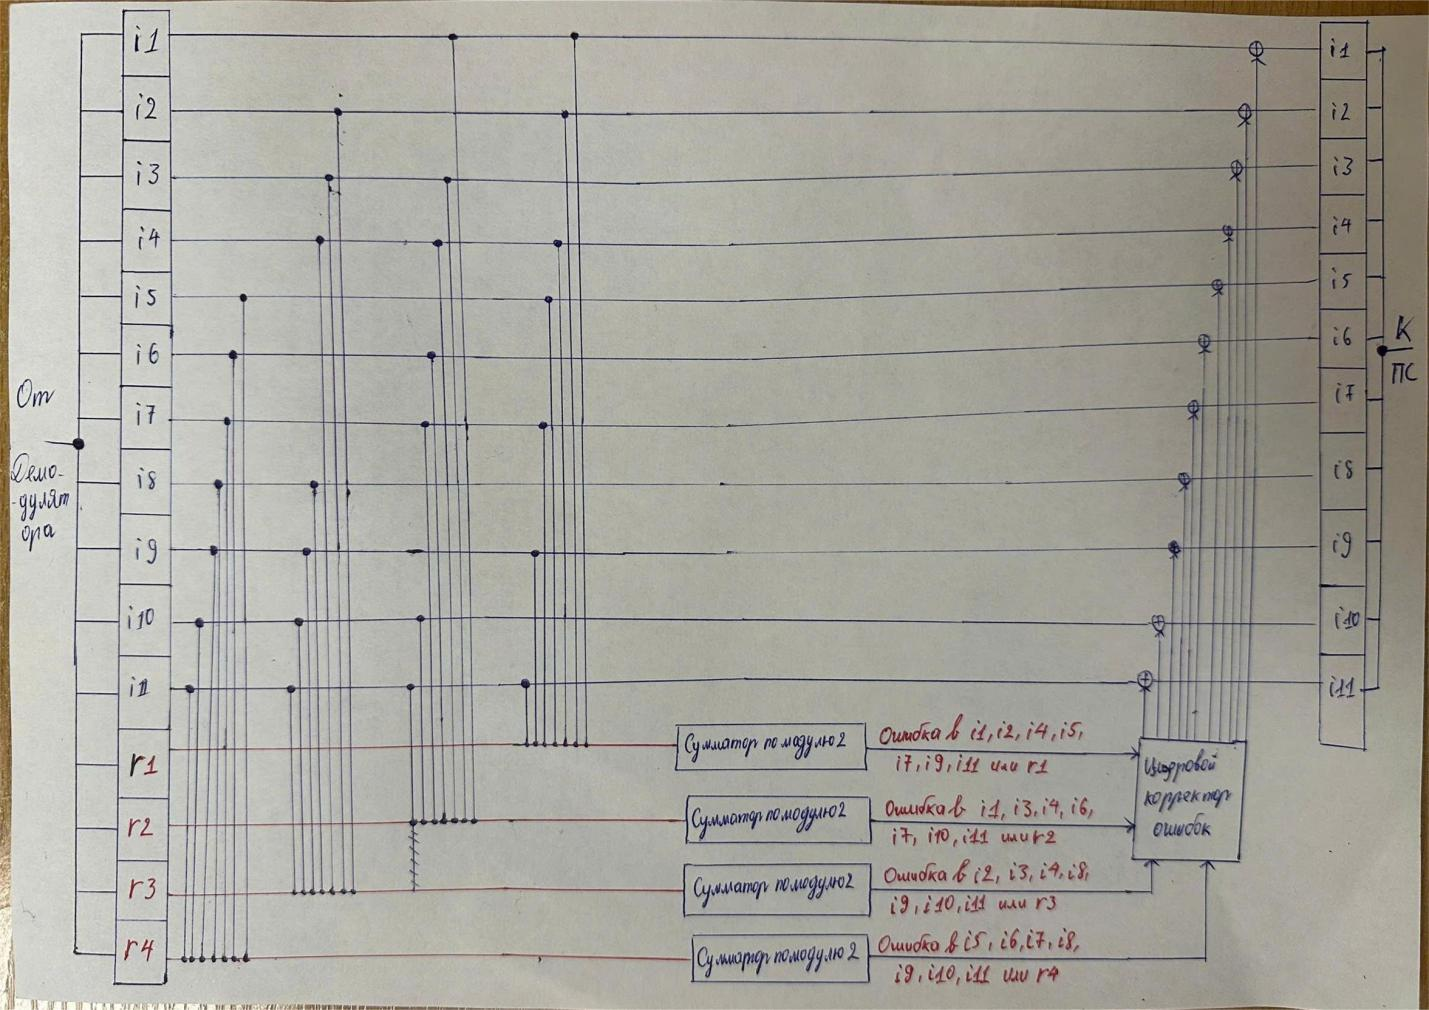 i1
i2
i3
i4
i5
i6
i7
i8
i9
i10
i11
r1
r2
r3
r4
От
Демо-
-дулят
ора
Сумматор по модулю 2
Ошибка в i1, i2, i4, i5,
i7, i9, i11 или r1
Сумматор по модулю 2
Ошибка в i1, i3, i4, i6,
i7, i10, i11 или r2
Сумматор по модулю 2
Ошибка в i2, i3, i4, i8,
i9, i10, i11 или r3
Сумматор по модулю 2
Ошибка в i5, i6, i7, i8,
i9, i10, i11 или r4
Цифровой
корректор
ошибок
i1
i2
i3
i4
i5
i6
i7
i8
i9
i10
i11
К
ПС